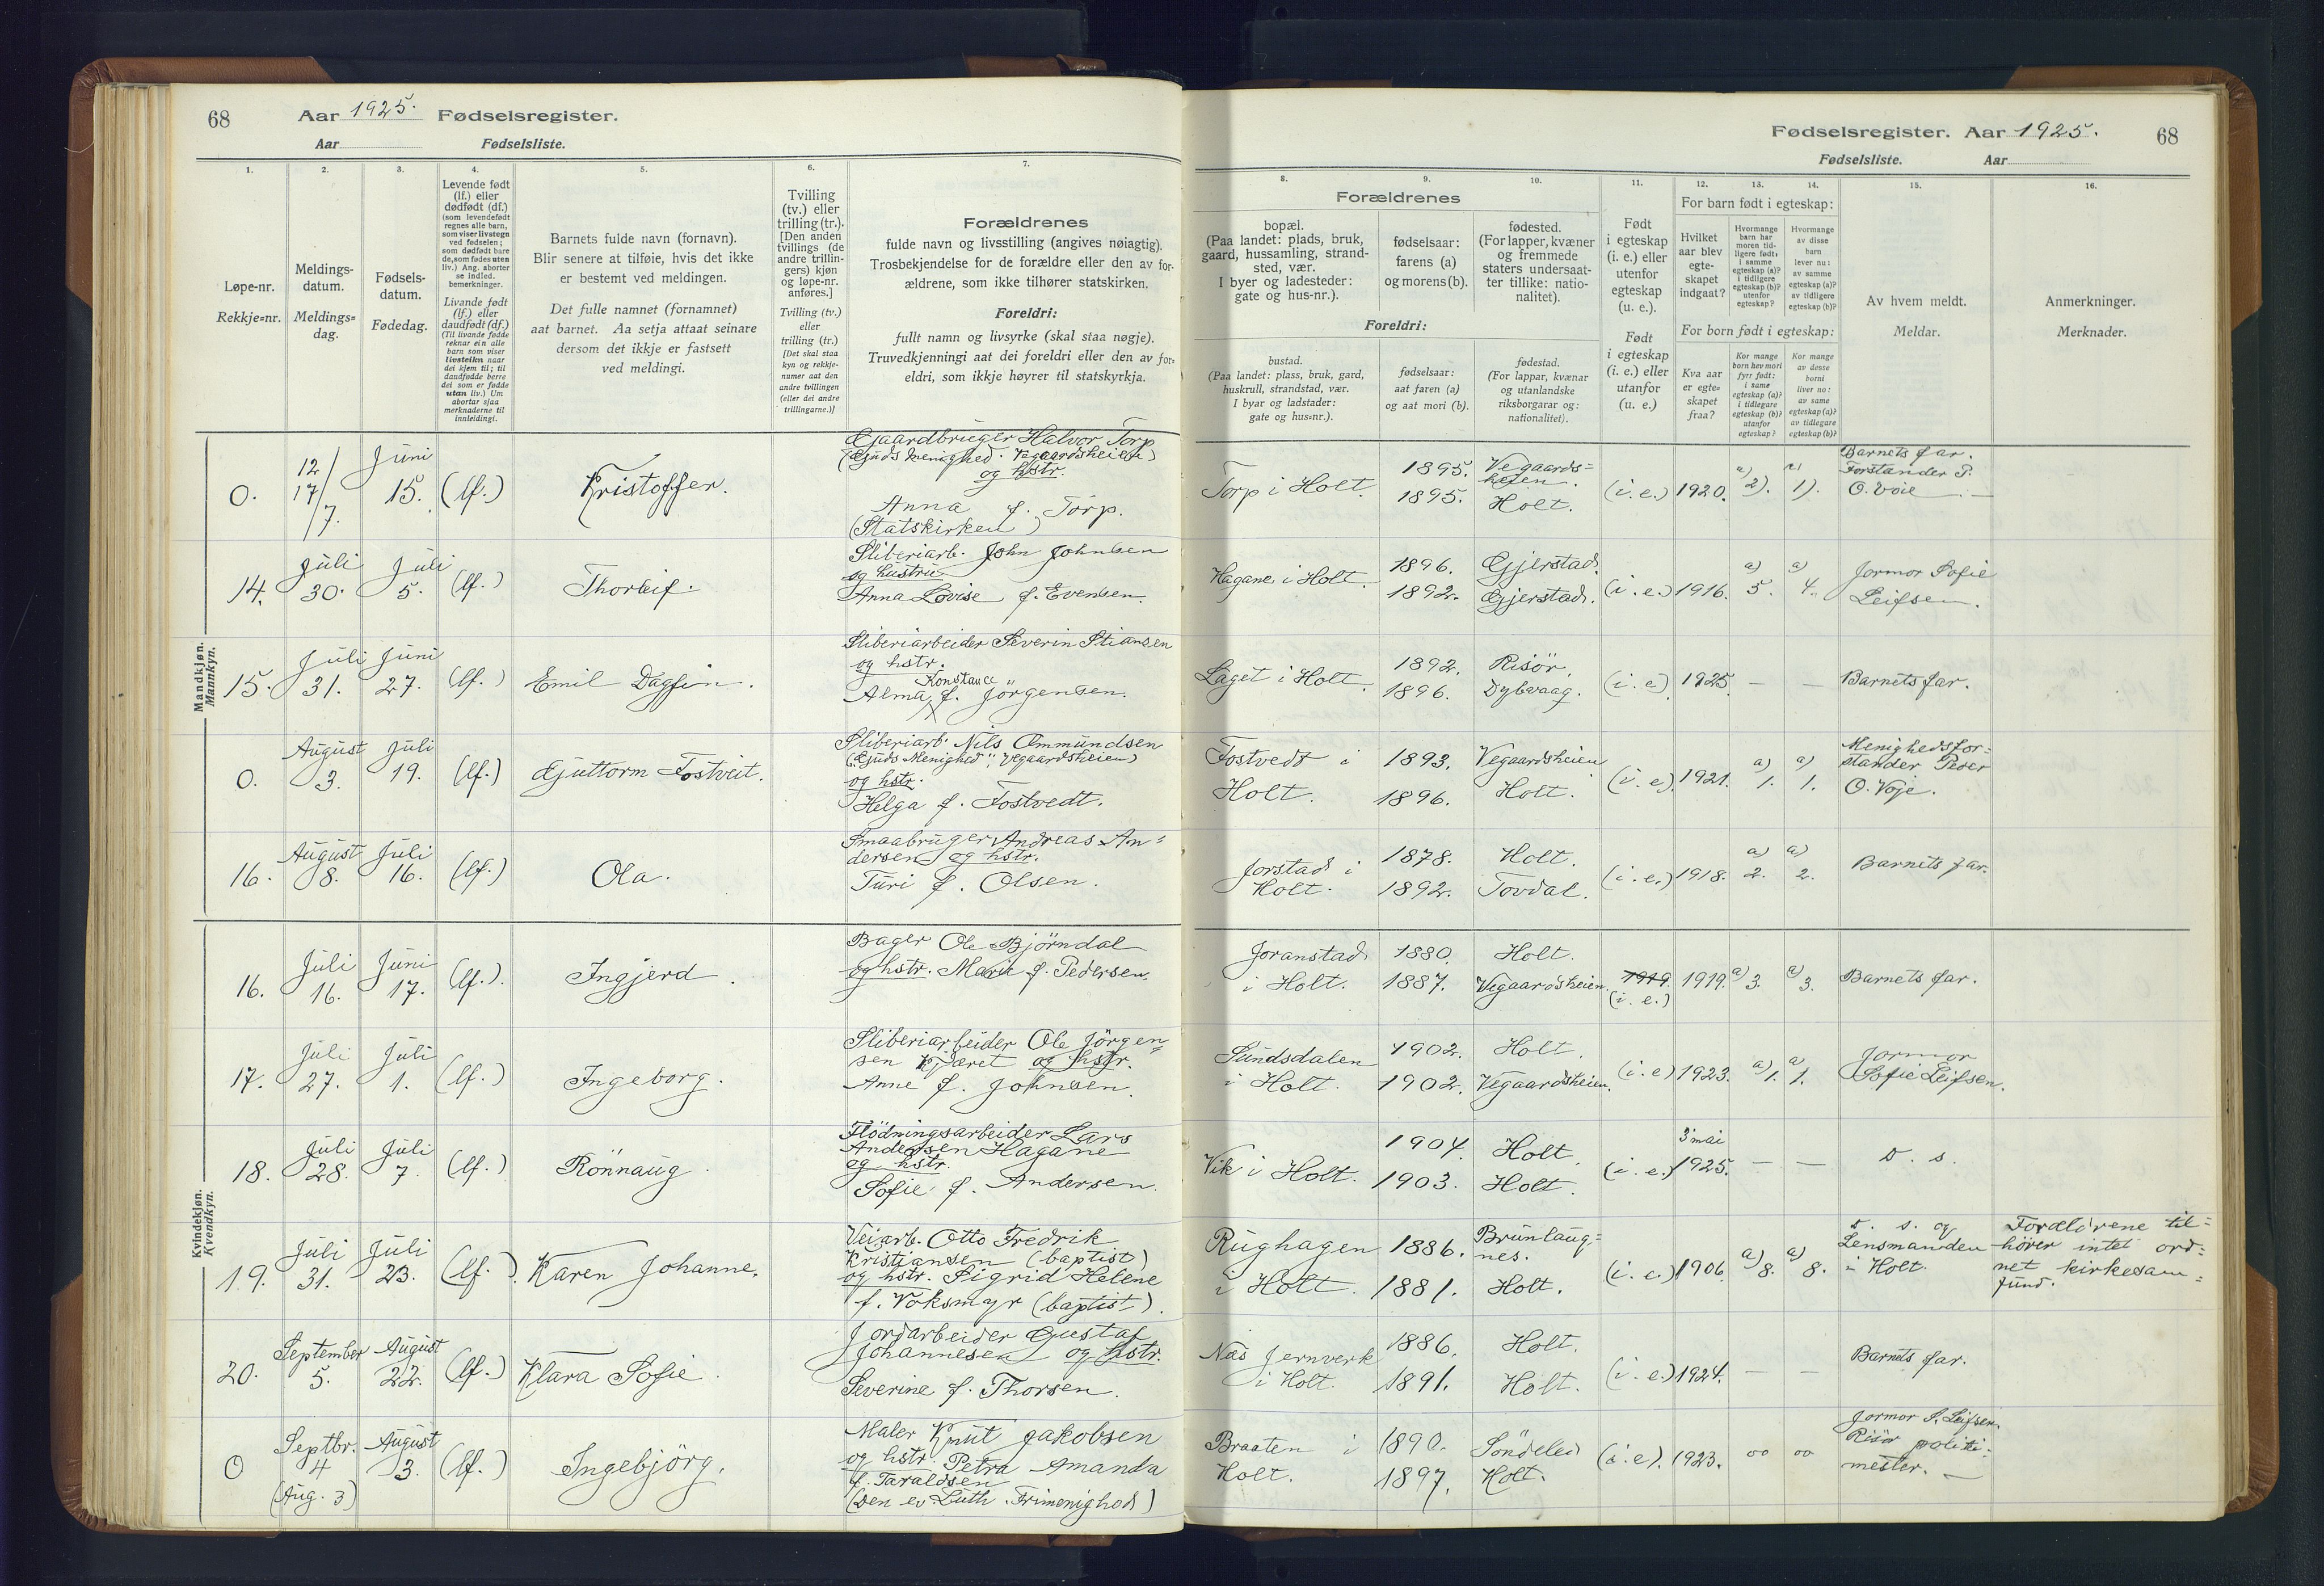 68 Aar 1925. Fødselsregister.
Aar Fødselsliste.
1. 2. 3. 4. 5. 6. 7.
Løpe-nr.
Rekkje-nr.
Meldings-
datum.
Meldings-
dag.
Fødsels-
datum.
Fødedag.
Levende født
(lf.) eller
dødfødt (df.)
(som levendefødt
regnes alle barn,
som viser livstegn
ved fødselen;
som dødfødt bare
de, som fødes uten
liv.) Ang. aborter
se indled.
bemerkninger.
Livande født
(lf.) eller
daudfødt (df.)
(Til livande fødde
reknar ein alle
barn som viser
livsteikn naar
dei kjem til; til
daudfødde berre
dei som er fødde
utan liv.) Um
abortar sjaa
merknaderne til
innleidingi.
Barnets fulde navn (fornavn).
Blir senere at tilføie, hvis det ikke
er bestemt ved meldingen.
Det fulle namnet (fornamnet)
aat barnet. Aa setja attaat seinare
dersom det ikkje er fastsett
ved meldingi.
Tvilling
(tv.) eller
trilling (tr.).
[Den anden
tvillings (de
andre trillin-
gers) kjøn
og løpe-nr.
anføres.]
Tvilling (tv.)
eller
trilling (tr.)
[Det skal staa
kyn og rekkje-
numer aat den
andre tvillingen
(eller dei andre
trillingarne.)]
Forældrenes
fulde navn og livsstilling (angives nøiagtig).
Trosbekjendelse for de forældre eller den av for-
ældrene, som ikke tilhører statskirken.
Foreldri:
fullt namn og livsyrke (skal staa nøgje).
Truvedkjenningi aat dei foreldri eller den av for-
eldri, som ikkje høyrer til statskyrkja.
Mandkjøn.
Mannkyn.
0. 12/17/7. Juni 15. (lf.) Kristoffer.
Gaardbruger Halvor Torp
(Guds menighed. Vegaardsheien)
og hstr.
Anna f. Torp.
(Statskirken)
14. Juli 30. Juli 5. (lf.) Thorleif.
Sliberiarb. John Johnsen
og hustru
Anna Lovise f. Evensen.
15. Juli 31. Juni 27. (lf.) Emil Dagfin.
Sliberiarbeider Severin Stiansen
og hstr.
Konstance
Alma f. Jörgensen.
0. August 3. Juli 19. (lf.) Guttorm Fostveit.
Sliberiarb. Nils Ommundsen
("Guds Menighed", Vegaardsheien)
og hstr.
Helga f. Fostvedt.
16. August 8. Juli 16. (lf.) Ola.
Smaabruger Andreas An-
dersen og hstr.
Turi f. Olsen.
Kvindekjøn.
Kvendkyn.
16. Juli 16. Juni 17. (lf.). Ingjerd.
Bager Ole Björndal
og hstr. Marie f. Pedersen.
17. Juli 27. Juli 1. (lf.) Ingeborg.
Sliberiarbeider Ole Jörgen-
sen Kjæret og hstr.
Anne f. Johnsen.
18. Juli 28. Juli 7. (lf.) Rönnaug.
Flödningsarbeider Lars
Andersen Hagane
og hstr.
Sofie f. Andersen.
19. Juli 31. Juli 23. (lf.). Karen Johanne.
Veiarb. Otto Fredrik
Kristiansen (baptist)
og hstr. Sigrid Helene
f. Voksmyr (baptist).
20. September 5. August 22. (lf.) Klara Sofie.
Jordarbeider Gustaf
Johannesen og hstr.
Severine f. Thorsen.
0 Septbr. 4 (Aug. 3) August 3. (lf.) Ingebjörg.
Maler Knut Jakobsen
og hstr. Petra Amanda
f. Taraldsen
(Den ev. Luth. Frimenighed)
Fødselsregister. Aar 1925. 68
Fødselsliste. Aar
8. 9. 10. 11. 12. 13. 14. 15. 16.
Forældrenes
bopæl.
(Paa landet: plads, bruk,
gaard, hussamling, strand-
sted, vær.
I byer og ladesteder:
gate og hus-nr.).
fødselsaar:
farens (a)
og morens (b).
fødested.
(For lapper, kvæner
og fremmede
staters undersaat-
ter tillike: natio-
nalitet).
Foreldri:
bustad.
(Paa landet: plass, bruk, gard,
huskrull, strandstad, vær.
I byar og ladstader:
gate og hus-nr.).
fødselsaar:
aat faren (a)
og aat mori (b).
fødestad.
(For lappar, kvænar
og utanlandske
riksborgarar og:
nationalitet).
Født
i egteskap
(i. e.) eller
utenfor
egteskap
(u. e.).
Født
i egteskap
(i. e.) eller
utanfor
(u. e.)
For barn født i egteskap:
Hvilket
aar blev
egte-
skapet
indgaat?
Hvormange
barn har
moren tid-
ligere født:
i samme
egteskap (a)?
i tidligere
egteskap (b)?
utenfor
egteskap?
Hvormange
av disse
barn
lever nu:
av samme
egteskap (a)?
av tidligere
egteskap (b)?
For born født i egteskap:
Kva aar
er egte-
skapet
fraa?
Kor mange
born hev mori
fyrr født:
i same
egteskap (a)?
i tidlegare
egteskap (b)?
utanfor
egteskap?
Kor mange
av desse
borni
liver no:
av same
egteskap (a)?
av tidlegare
egteskap (b)?
Av hvem meldt.
Meldar.
Anmerkninger.
Merknader.
Torp i Holt. 1895. 1895. Vegaards-
heien. Holt. (i. e.) 1920. a) 2). a) 1).
Barnets far.
Forstander P.
O. Voie —
Hagane i Holt. 1896. 1892. Gjerstad. Gjerstad. (i. e.) 1916. a) 5. a) 4.
Jormor Sofie
Leifsen.
Laget i Holt. 1892. 1896. Risör. Dybvaag. (i. e) 1925. — — Barnets far.
Fostvedt i
Holt. 1893. 1896. Vegaardsheien Holt. (i. e). 1921. a) 1. a) 1.
Menighedsfor-
stander Peder
O. Voje.
Jorstad i
Holt. 1878. 1892. Holt. Tovdal. (i. e.) 1918. a) 2. a) 2. Barnets far.
Joranstad
i Holt. 1880. 1887. Holt. Vegaardsheien. 1919. (i. e.) 1919. a) 3. a) 3. Barnets far.
Sundsdalen
i Holt. 1902. 1902. Holt. Vegaardsheien. (i. e) 1923. a) 1. a) 1.
Jormor
Sofie Leifsen.
Vik i Holt. 1904. 1903. Holt. Holt. (i. e.) 3 mai 1925. — — D. s.
Rughagen
i Holt. 1886. 1881. Brunlaug-
nes. Holt. (i. e.) 1906. a) 8. a) 8.
D. s. og
Lensmanden
i Holt.
Forældrene til-
hörer intet ord-
net kirkesam-
fund.
Næs Jernverk
i Holt. 1886. 1891. Holt. Holt. (i. e.) 1924. — — Barnets far.
Braaten i
Holt. 1890. 1897. Söndeled Holt. (i. e). 1923. oo oo
Jormor S. Leifsen.
Risör politi-
mester. —